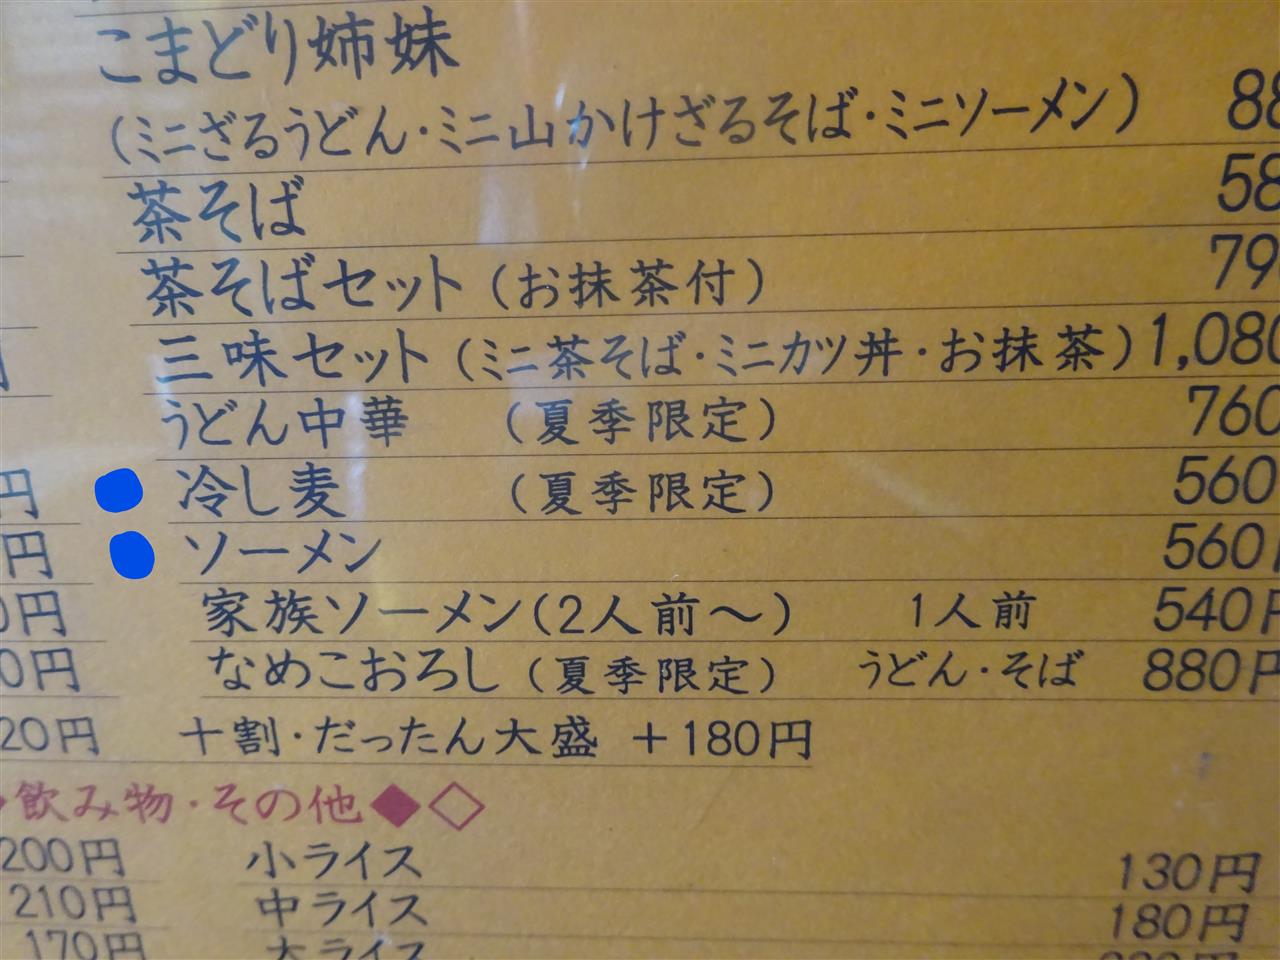 こまどり姉妹
(ミニざるうどん・ミニ山かけざるそば・ミニソーメン) 88
茶そば 58
茶そばセット (お抹茶付) 79
三味セット (ミニ茶そば・ミニカツ丼・お抹茶) 1,080
うどん中華 (夏季限定) 760
円 冷し麦 (夏季限定) 560
円 ソーメン 560円
0円 家族ソーメン(2人前～) 1人前 540円
0円 なめこおろし (夏季限定) うどん・そば 880円
20円 十割・だったん大盛 +180円
飲み物・その他◆◇
200円 小ライス 130円
210円 中ライス 180円
170円 大ライス